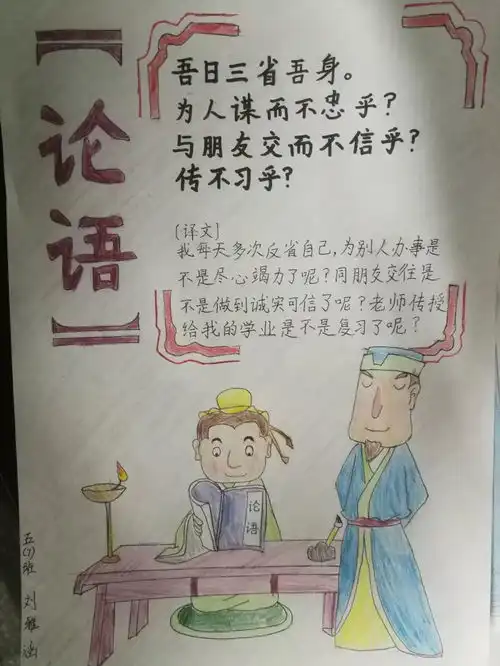 论语
吾日三省吾身。
为人谋而不忠乎?
与朋友交而不信乎?
传不习乎?
[译文]
我每天多次反省自己,为别人办事是
不是尽心竭力了呢?同朋友交往是
不是做到诚实可信了呢?老师传授
给我的学业是不是复习了呢?
论语
五(7)班 刘雅涵